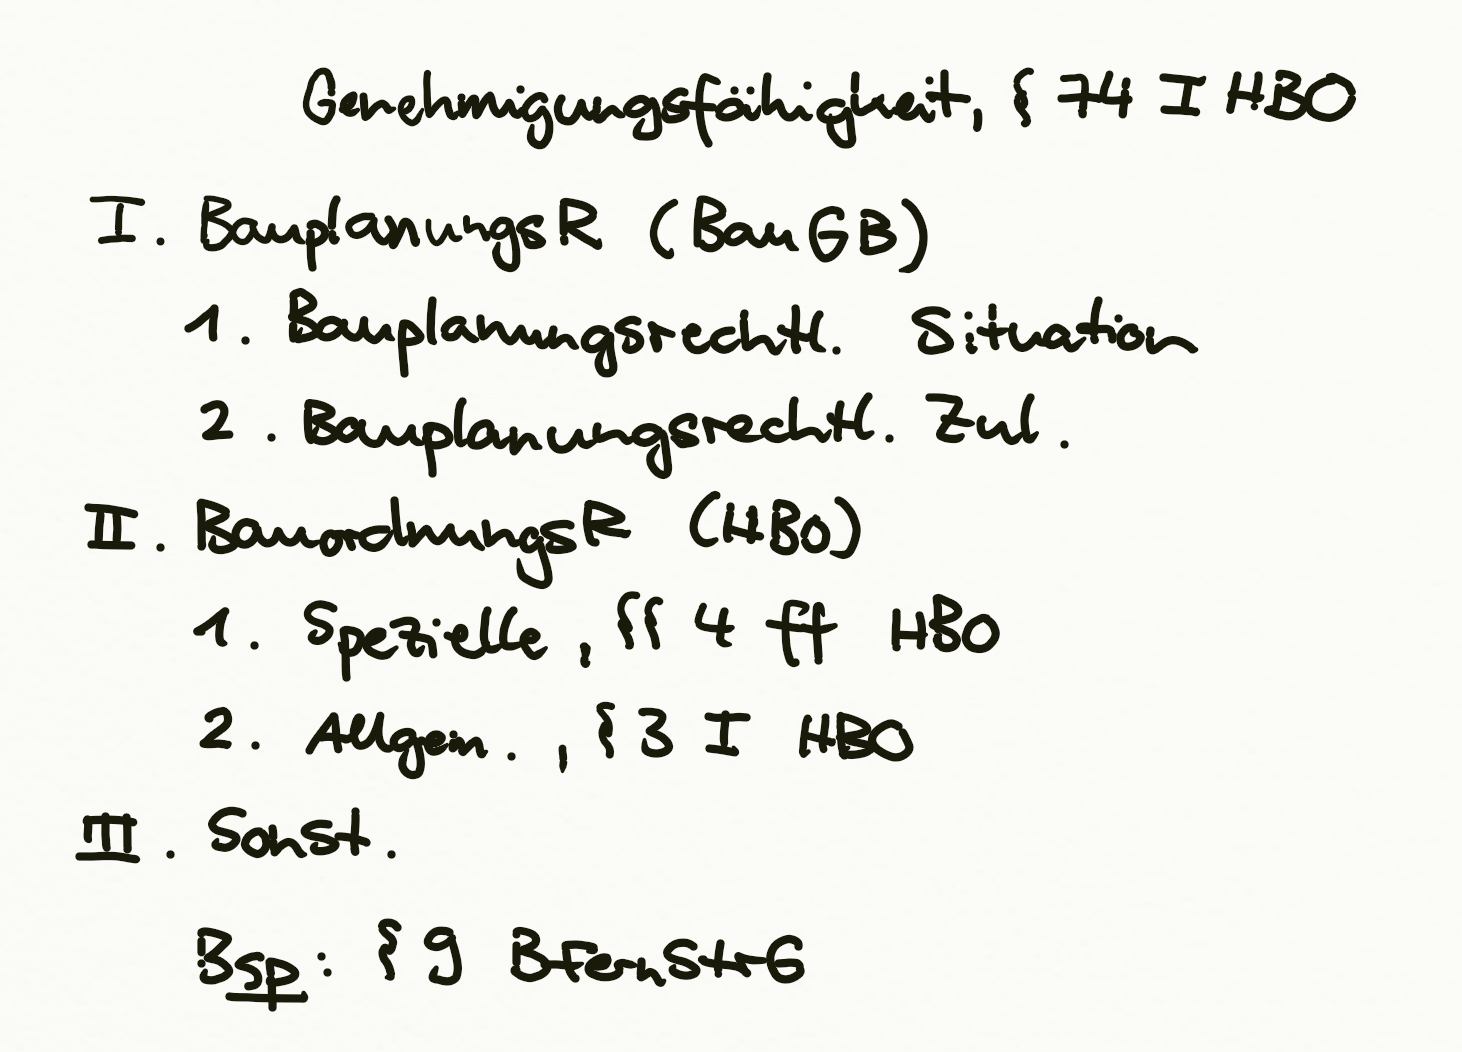 Genehmigungsfähigkeit, § 74 I HBO
I. BauplanungsR (BauGB)
1. Bauplanungsrechtl. Situation
2. Bauplanungsrechtl. Zul.
II. BauordnungsR (HBO)
1. Spezielle, §§ 4 ff HBO
2. Allgem., § 3 I HBO
III. Sonst.
Bsp: § 9 BFernStrG